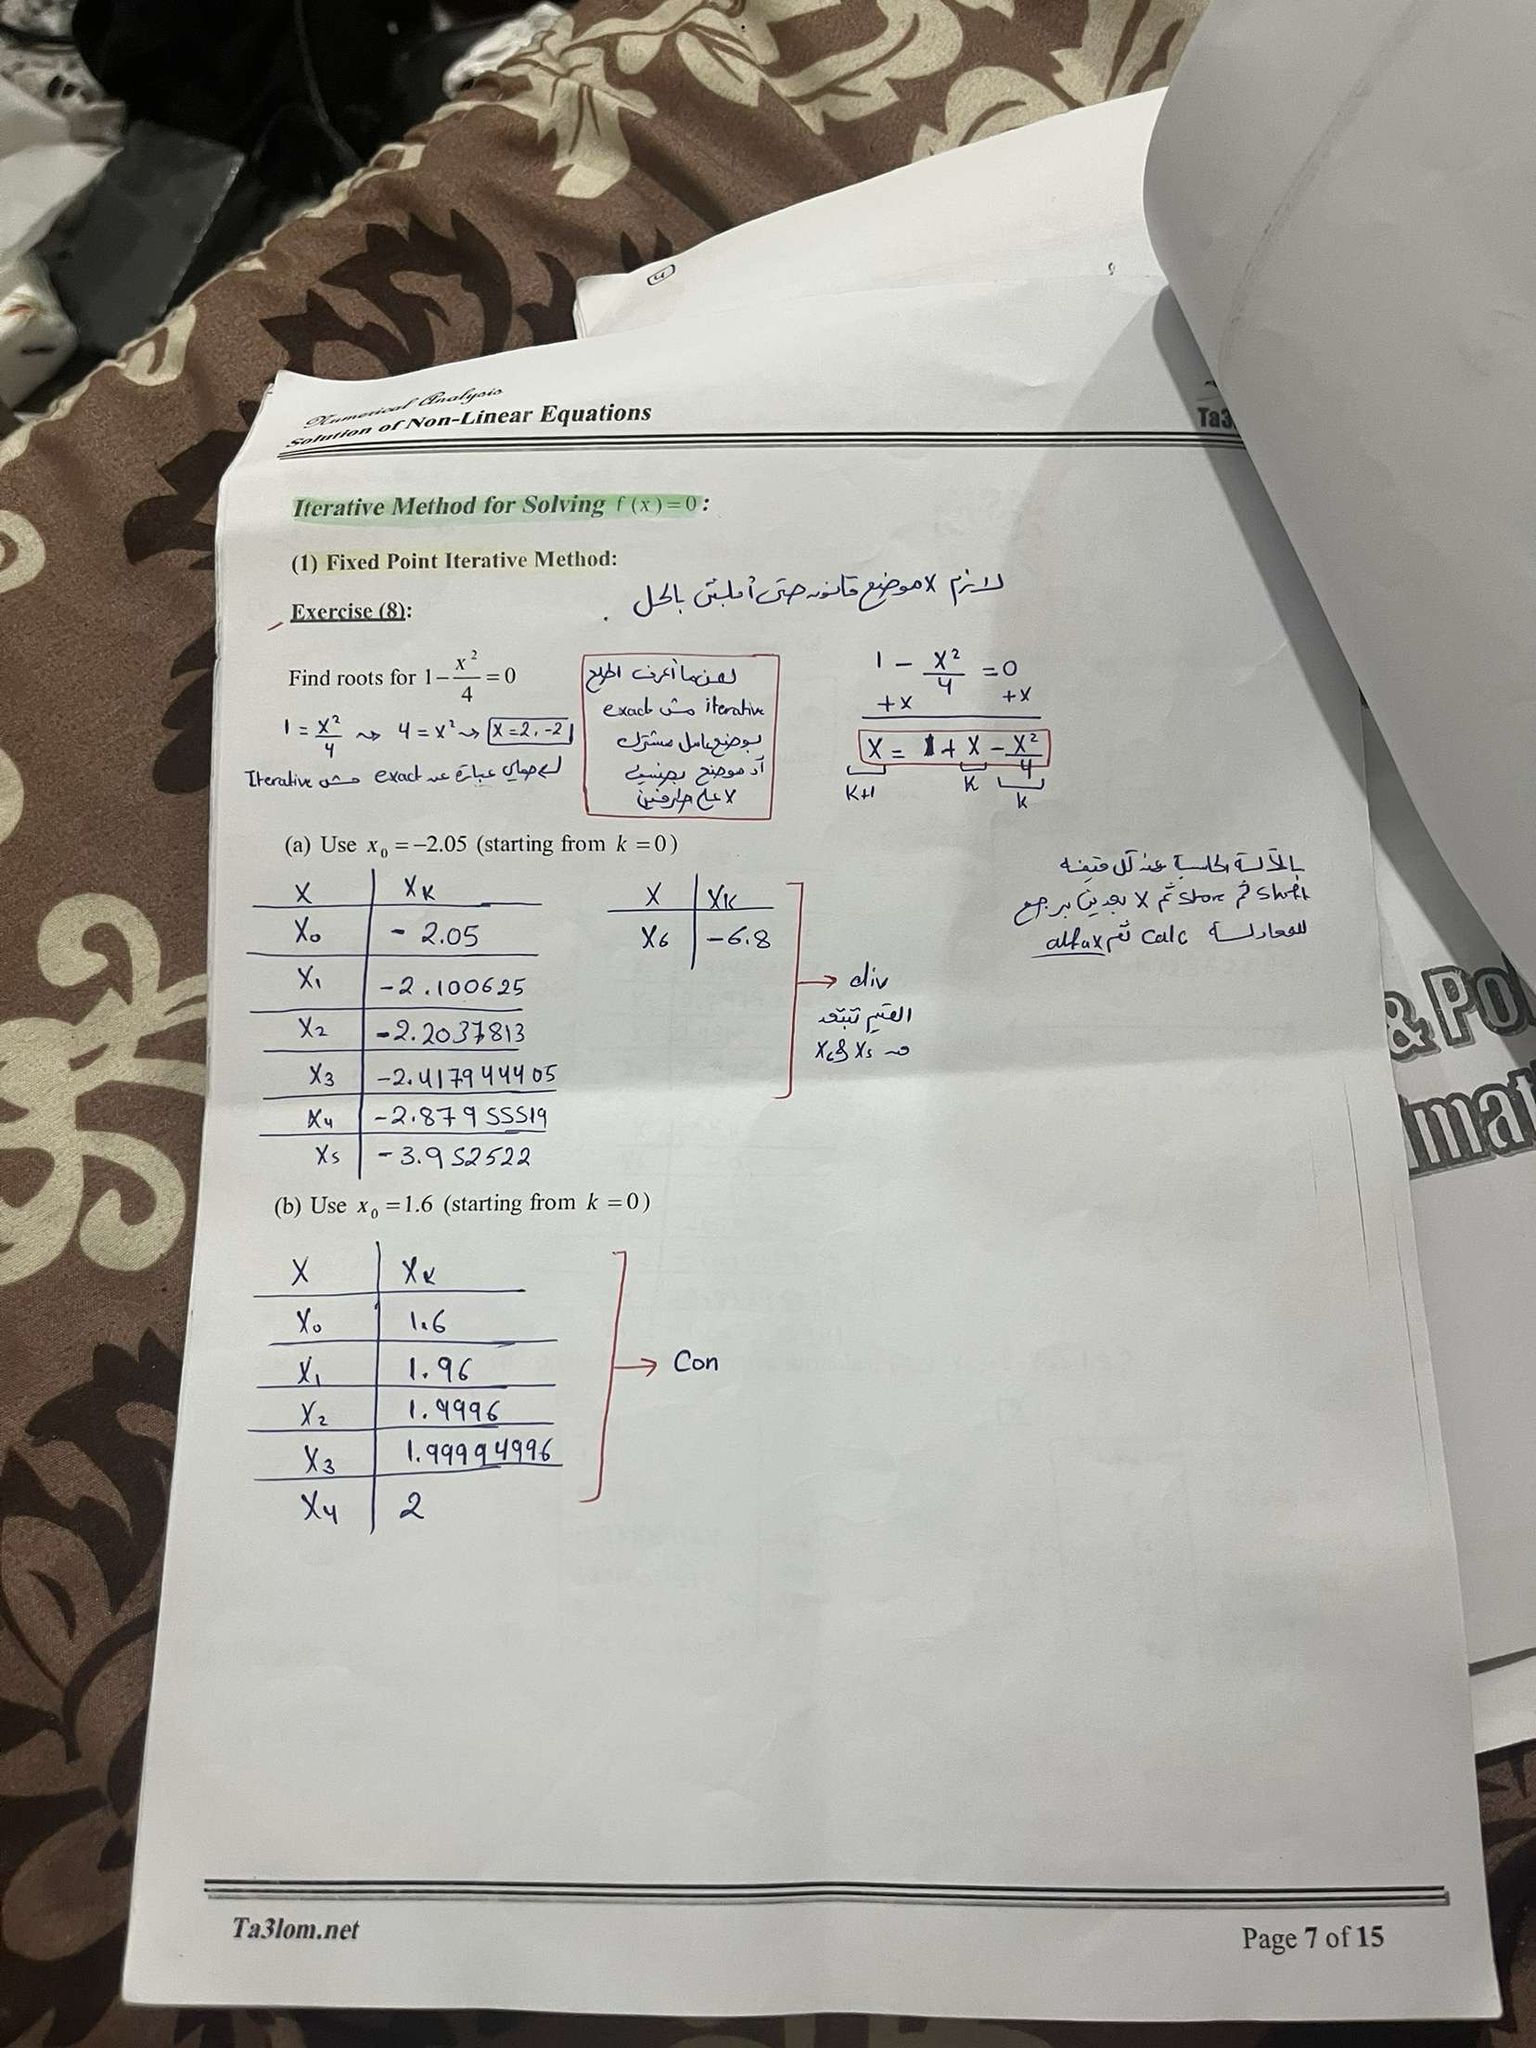 Numerical Analysis
Solution of Non-Linear Equations
Ta3
Iterative Method for Solving f (x) = 0 :
(1) Fixed Point Iterative Method:
لازم x موضوع قانون حتى أبلش بالحل
Exercise (8):
Find roots for 1 − x²/4 = 0
1 = x²/4 ⇝ 4 = x² ⇝ x = 2, -2
Iterative مش exact عبارة عن
iterative مش exact
بوضع عامل مشترك
x على طرفين
1 − x²/4 = 0
+x +x
x = 1 + x − x²/4
K+1 K K
(a) Use x₀ = −2.05 (starting from k = 0)
X XK
X₀ - 2.05
X₁ -2.100625
X₂ -2.2037813
X₃ -2.417944405
X₄ -2.87955519
X₅ -3.952522
X XK
X₆ -6.8
→ div
القيم تبتعد
بالآلة الحاسبة عند كل قيمة
shift ثم store ثم x بعدين برجع
للمعادلة calc ثم alfa x
(b) Use x₀ = 1.6 (starting from k = 0)
X XK
X₀ 1.6
X₁ 1.96
X₂ 1.9996
X₃ 1.99994996
X₄ 2
→ Con
& Po
imat
Ta3lom.net
Page 7 of 15